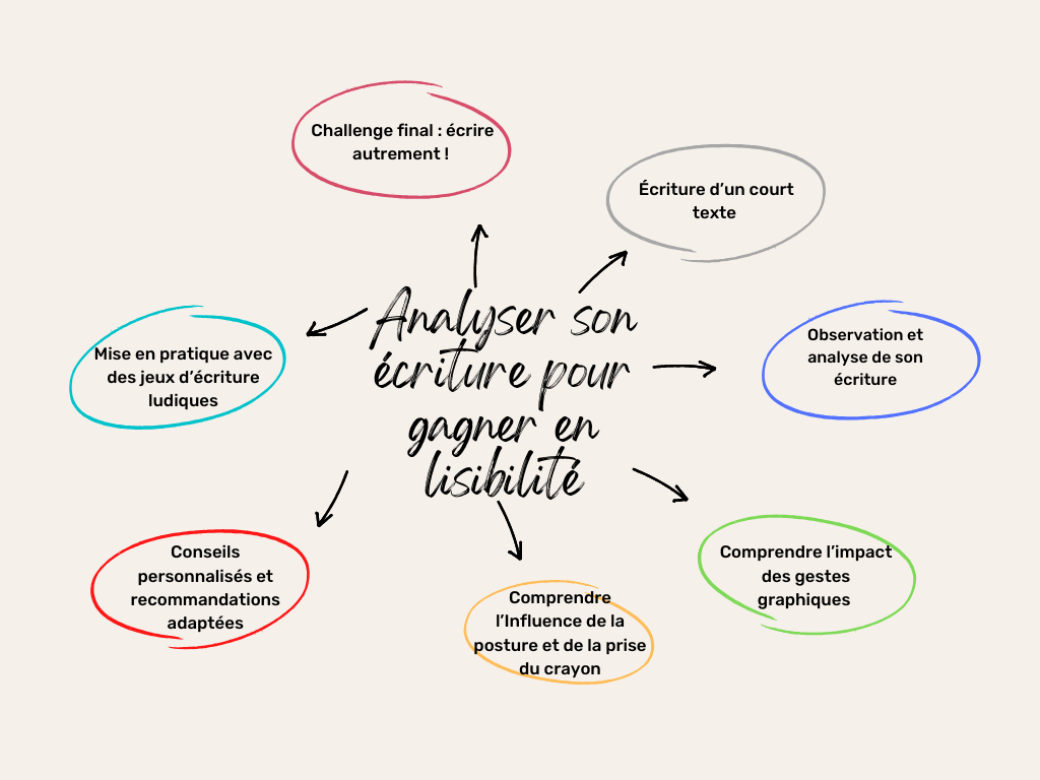 Challenge final : écrire
autrement !
Écriture d’un court
texte
Analyser son
écriture pour
gagner en
lisibilité
Observation et
analyse de son
écriture
Mise en pratique avec
des jeux d’écriture
ludiques
Comprendre l’impact
des gestes
graphiques
Conseils
personnalisés et
recommandations
adaptées
Comprendre
l’Influence de la
posture et de la prise
du crayon